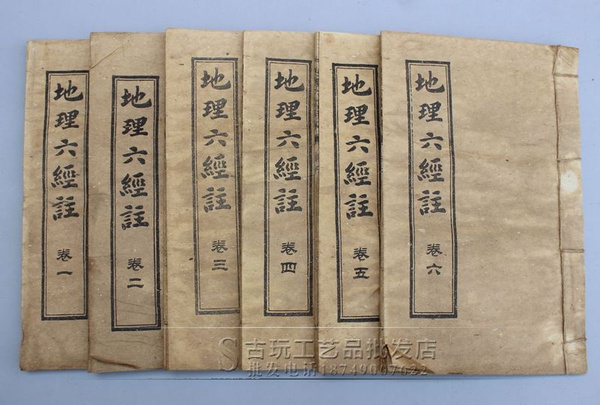 地理六經註 卷一
地理六經註 卷二
地理六經註 卷三
地理六經註 卷四
地理六經註 卷五
地理六經註 卷六
S古玩工艺品批发店
批发电话